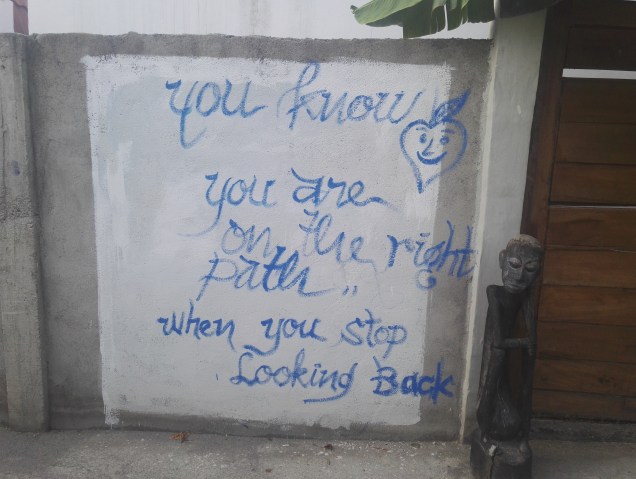 you know
you are
on the right
path ,,
when you stop
Looking Back